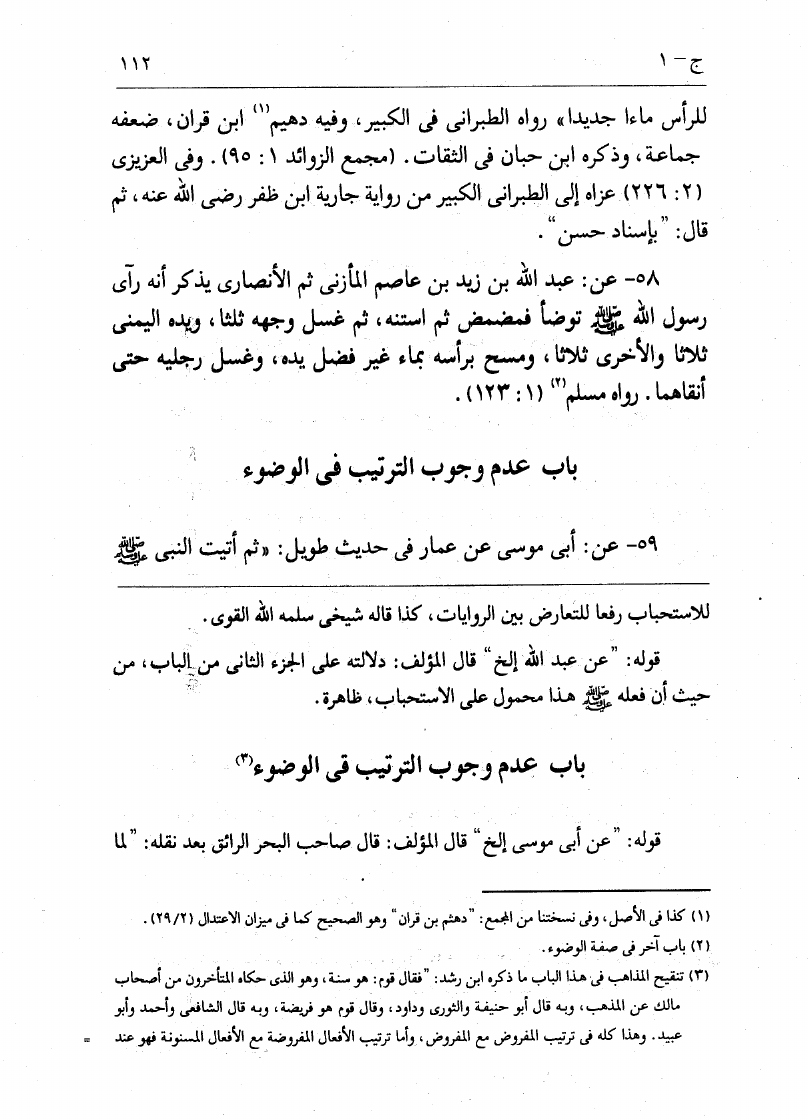 ج - ١ ١١٢
للرأس ماءا جديدا» رواه الطبرانى فى الكبير، وفيه دهيم(١) ابن قران، ضعفه
جماعة، وذكره ابن حبان فى الثقات. (مجمع الزوائد ١ : ٩٥). وفى العزيزى
(٢: ٢٢٦) عزاه إلى الطبرانى الكبير من رواية جارية ابن ظفر رضى الله عنه، ثم
قال: "بإسناد حسن".
٥٨- عن: عبد الله بن زيد بن عاصم المأزنى ثم الأنصارى يذكر أنه رآى
رسول الله ﷺ توضأ فمضمض ثم استنه، ثم غسل وجهه ثلثا، ويده اليمنى
ثلاثا والأخرى ثلاثا، ومسح برأسه بماء غير فضل يده، وغسل رجليه حتى
أنقاهما. رواه مسلم(٢) (١ : ١٢٣).
باب عدم وجوب الترتيب فى الوضوء
٥٩- عن: أبى موسى عن عمار فى حديث طويل: «ثم أتيت النبى ﷺ
للاستحباب رفعا للتعارض بين الروايات، كذا قاله شيخى سلمه الله القوى.
قوله: "عن عبد الله إلخ" قال المؤلف: دلالته على الجزء الثانى من الباب، من
حيث أن فعله ﷺ هذا محمول على الاستحباب، ظاهرة.
باب عدم وجوب الترتيب قى الوضوء(٣)
قوله: "عن أبى موسى إلخ" قال المؤلف: قال صاحب البحر الرائق بعد نقله: "لما
(١) كذا فى الأصل، وفى نسختنا من المجمع: "دهثم بن قران" وهو الصحيح كما فى ميزان الاعتدال (٢٩/٢).
(٢) باب آخر فى صفة الوضوء.
(٣) تنقيح المذاهب فى هذا الباب ما ذكره ابن رشد: "فقال قوم: هو سنة، وهو الذى حكاه المتأخرون من أصحاب
مالك عن المذهب، وبه قال أبو حنيفة والثورى وداود، وقال قوم هو فريضة، وبه قال الشافعى وأحمد وأبو
عبيد. وهذا كله فى ترتيب المفروض مع المفروض، وأما ترتيب الأفعال المفروضة مع الأفعال المسنونة فهو عند =